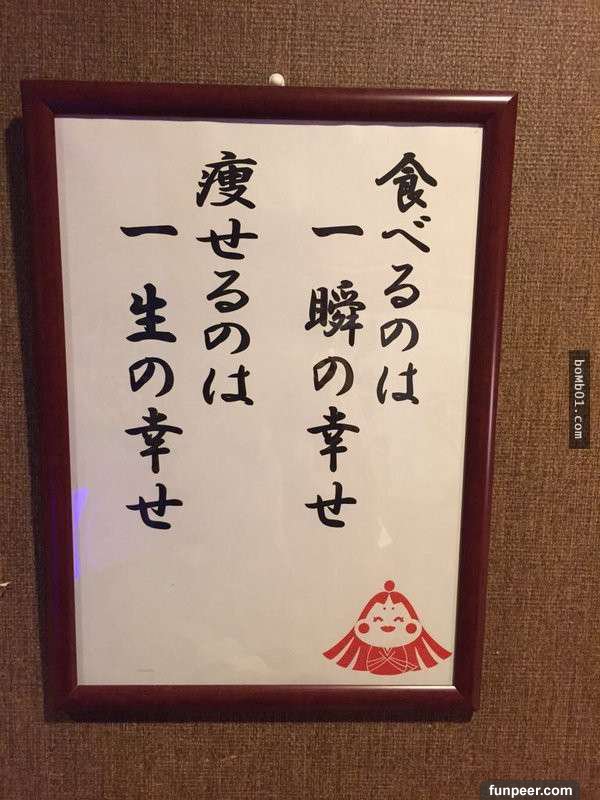 食べるのは
一瞬の幸せ
痩せるのは
一生の幸せ
boMb01.com
funpeer.com